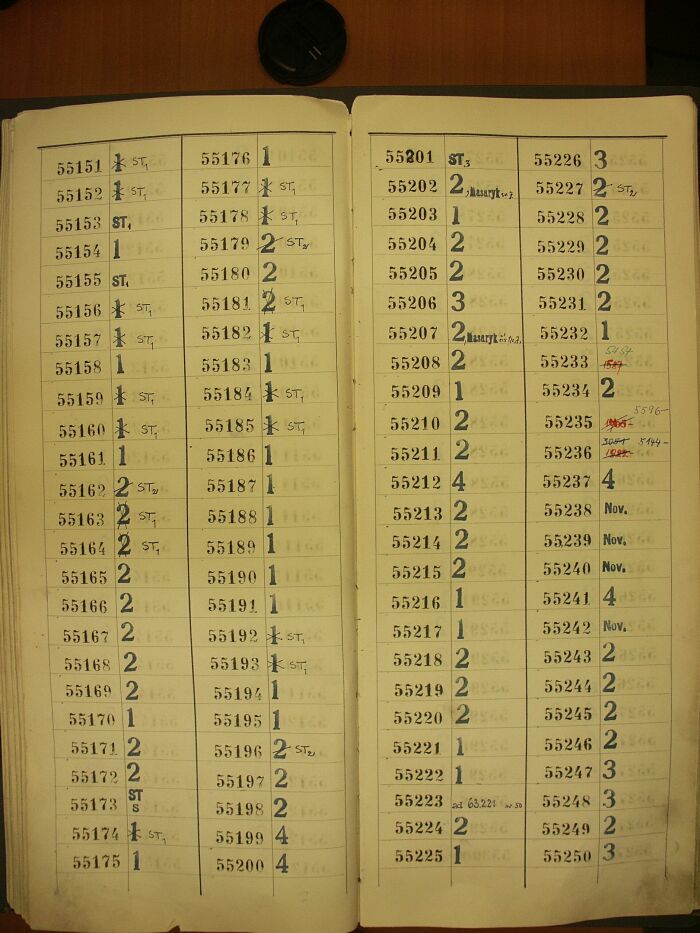 55151 1 ST1
55152 1 ST1
55153 ST1
55154 1
55155 ST1
55156 1 ST1
55157 1 ST1
55158 1
55159 1 ST1
55160 1 ST1
55161 1
55162 2 ST2
55163 2 ST1
55164 2 ST1
55165 2
55166 2
55167 2
55168 2
55169 2
55170 1
55171 2
55172 2
55173 ST S
55174 1 ST1
55175 1
55176 1
55177 1 ST1
55178 1 ST1
55179 2 ST2
55180 2
55181 2 ST1
55182 1 ST1
55183 1
55184 1 ST1
55185 1 ST1
55186 1
55187 1
55188 1
55189 1
55190 1
55191 1
55192 1 ST1
55193 1 ST1
55194 1
55195 1
55196 2 ST2
55197 2
55198 2
55199 4
55200 4
55201 ST3
55202 2, Masaryk
55203 1
55204 2
55205 2
55206 3
55207 2, Masaryk
55208 2
55209 1
55210 2
55211 2
55212 4
55213 2
55214 2
55215 2
55216 1
55217 1
55218 2
55219 2
55220 2
55221 1
55222 1
55223 ad 63.221
55224 2
55225 1
55226 3
55227 2 ST2
55228 2
55229 2
55230 2
55231 2
55232 1
55233
55234 2
55235 5596-
55236 3051 5144-
55237 4
55238 Nov.
55239 Nov.
55240 Nov.
55241 4
55242 Nov.
55243 2
55244 2
55245 2
55246 2
55247 3
55248 3
55249 2
55250 3